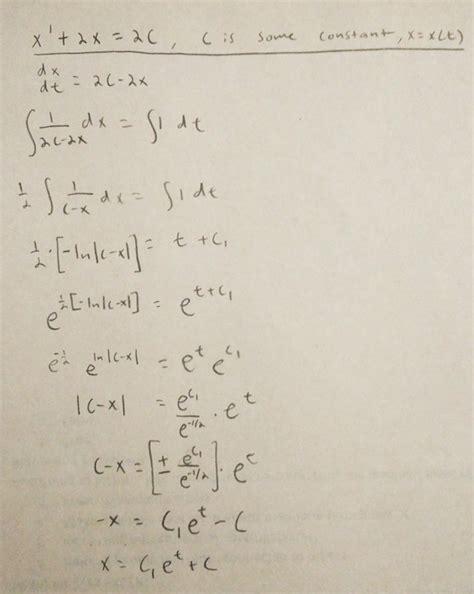 x' + 2x = 2c, c is some constant, x = x(t)
dx/dt = 2c - 2x
∫ 1/(2c-2x) dx = ∫ 1 dt
1/2 ∫ 1/(c-x) dx = ∫ 1 dt
1/2 · [-ln|c-x|] = t + c₁
e^(1/2[-ln|c-x|]) = e^(t+c₁)
e^(-1/2) e^(ln|c-x|) = e^t e^(c₁)
|c-x| = e^(c₁)/e^(-1/2) · e^t
c-x = [± e^(c₁)/e^(-1/2)] · e^t
-x = c₁e^t - c
x = c₁e^t + c